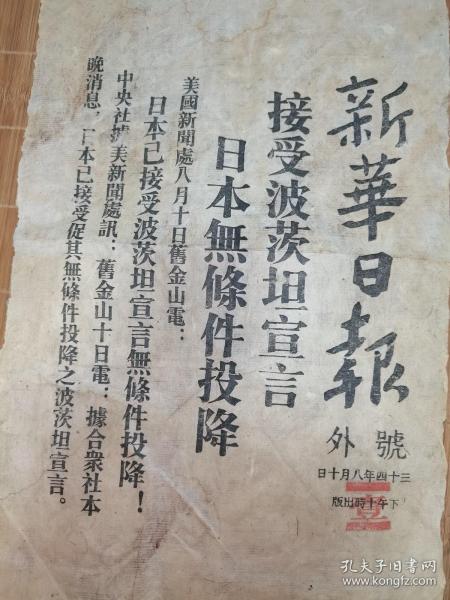 新華日報
號外
三十四年八月十日
下午十時出版
接受波茨坦宣言
日本無條件投降
美國新聞處八月十日舊金山電：
日本已接受波茨坦宣言無條件投降！
中央社據美新聞處訊：舊金山十日電：據合衆社本
晚消息，日本已接受促其無條件投降之波茨坦宣言。
孔夫子旧书网
www.kongfz.com